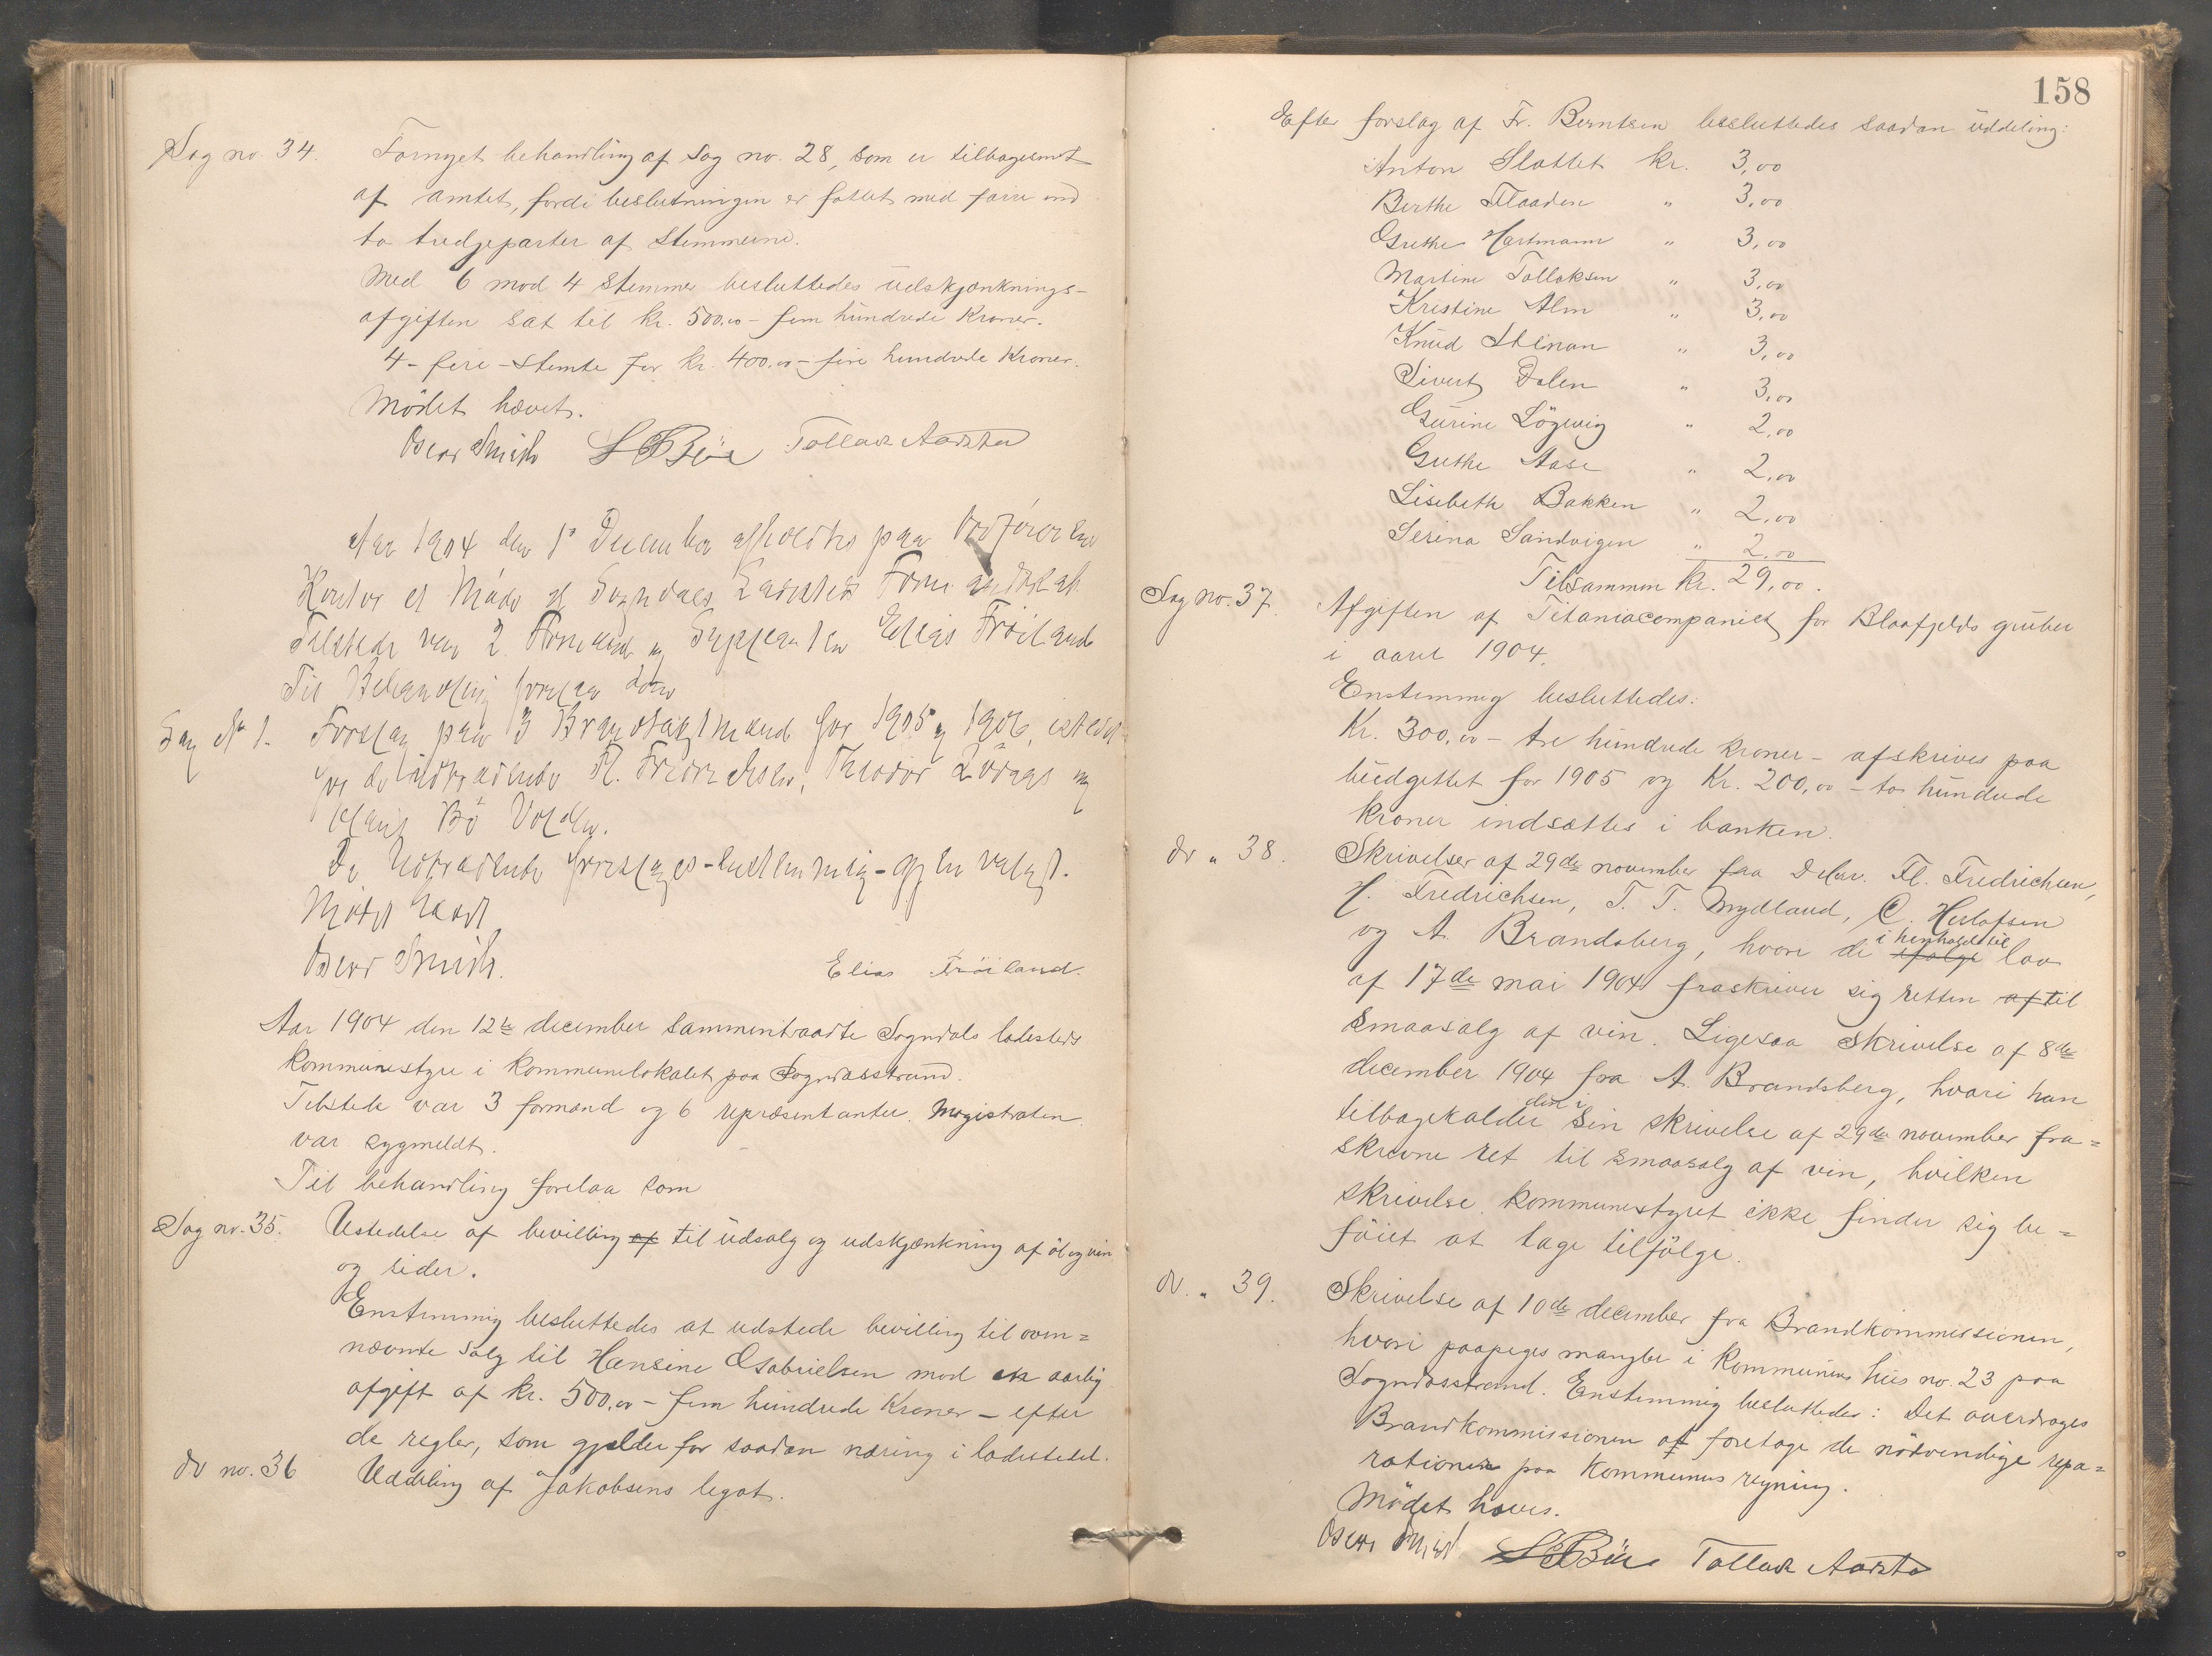 Sag no. 34. Fornyet behandling af Sag no. 28, som er tilbagesendt
af amtet, fordi beslutningen er fattet med færre end
to tredjeparter af Stemmerne.
Med 6 mod 4 Stemmer besluttedes udskjænknings-
afgiften sat til kr. 500,00 - fem hundrede Kroner.
4 - fire - Stemte for kr. 400,00 - fire hundrede Kroner.
Mödet hævet.
Oscar Smith S B Böe Tollack Aarstad
Aar 1904 den 1' December afholdtes paa Ordförerens
Kontor et Möde af Sogndals Ladesteds Formandskab.
Tilstede var 2 Formænd og Suppleanten Elias Fröiland
Til Behandling forelaa som
Sag No 1. Forslag paa 3 Brandtagtmænd for 1905 og 1906, istedet
for de udtrædende Fl. Fredrichsen, Theodor Lödges og
Bö Volden.
De Udtrædende foreslaaes - enstemmig - gjenvalgt.
Mödet hævet
Oscar Smith. Elias Fröiland.
Aar 1904 den 12te december sammentraadte Sogndals ladesteds
kommunestyre i kommunelokalet paa Sogndalsstrand.
Tilstede var 3 formænd og 6 repræsentanter. Magistraten
var sygmeldt.
Til behandling forelaa som
Sag no. 35. Ustedelse af bevilling af til udsalg og udskjænkning af öl og vin
og sider.
Enstemmig besluttedes at udstede bevilling til oven=
nævnte Salg til Hansine Gabrielsen mod en aarlig
afgift af kr. 500,00 - fem hundrede Kroner - efter
de regler, som gjælder for saadan næring i ladestedet.
do no. 36 Uddeling af Jakobsens legat.
158
Efter forslag af Fr. Berntsen besluttedes saadan uddeling:
Anton Slottet kr. 3,00
Berthe Flaaden " 3,00
Grethe Hartmann " 3,00
Martine Tollaksen " 3,00
Kristine Alm " 3,00
Knud Stenan " 3,00
Sivert Dalen " 3,00
Gurine Lögevig " 2,00
Grethe Aase " 2,00
Lisebeth Bakken " 2,00
Serina Sandvigen " 2,00
Tilsammen kr. 29,00.
Sag no. 37. Afgiften af Titaniacompaniet for Blaafjelds gruber
i aaret 1904.
Enstemmig besluttedes:
Kr. 300,00 - tre hundrede kroner - afskrives paa
budgettet for 1905 og Kr. 200,00 - to hundrede
kroner indsættes i banken.
do " 38. Skrivelser af 29de november fra Fl. Fredrichsen,
H. Fredrichsen, T. T. Mydland, C. Herlofsen
og A. Brandsberg, hvori de ifølge i henhold til lov
af 17de mai 1904 fraskriver sig retten af til
smaasalg af vin. Ligesaa Skrivelse af 8de
december 1904 fra A. Brandsberg, hvori han
tilbagekalder den i sin skrivelse af 29de november fra=
skrevne ret til smaasalg af vin, hvilken
skrivelse kommunestyret ikke finder sig be=
föiet at tage tilfölge.
do. " 39. Skrivelse af 10de december fra Brandkommissionen,
hvori paapeges mangler i Kommunens hus no. 23 paa
Sogndalsstrand. Enstemmig besluttedes: Det overdrages
Brandkommissionen at foretage de nödvendige repa=
rationer paa Kommunens regning.
Mödet hæves.
Oscar Smith S B Böe Tollack Aarstad